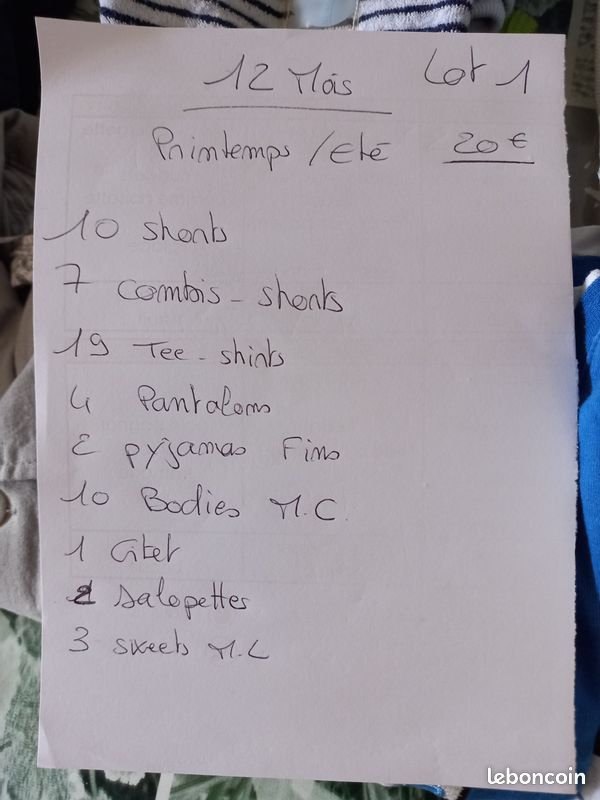 12 Mois Lot 1
Printemps / Eté 20 €
10 shorts
7 combis - shorts
19 Tee - shirts
4 Pantalons
2 pyjamas Fins
10 Bodies M.C.
1 Gilet
2 salopettes
3 sweets M.L
leboncoin